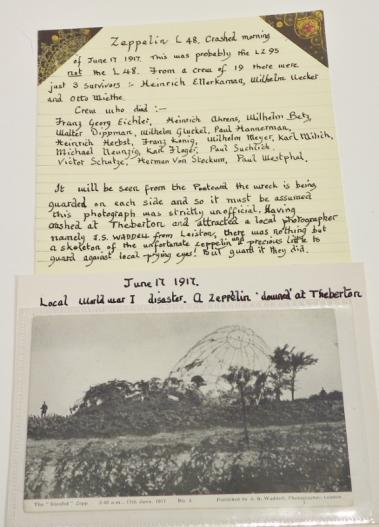 Zeppelin L 48. Crashed morning
of June 17 1917. This was probably the LZ 95
not the L 48. From a crew of 19 there were
just 3 survivors :- Heinrich Ellerkaman, Wilhelm Uecker
and Otto Miethe.
Crew who died :-
Franz Georg Eichler, Heinrich Ahrens, Wilhelm Betz,
Walter Dippman, Wilhelm Gluckel, Paul Hannerman,
Heinrich Herbst, Franz Konig, Wilhelm Meyer, Karl Milich,
Michael Neunzig, Karl Floger, Paul Suchlich.
Victor Schutze, Herman Von Stockum, Paul Westphal.
It will be seen from the Postcard the wreck is being
guarded on each side and so it must be assumed
this photograph was strictly unofficial. Having
crashed at Theberton and attracted a local photographer
namely J.S. WADDELL from Leiston, there was nothing but
a skeleton of the unfortunate zeppelin and precious little to
guard against local prying eyes! But guard it they did.
June 17 1917.
Local World War I disaster. A Zeppelin 'downed' at Theberton
The "Strafed" Zepp. 3.40 a.m., 17th June, 1917. No. 4. Published by J. S. Waddell, Photographer, Leiston